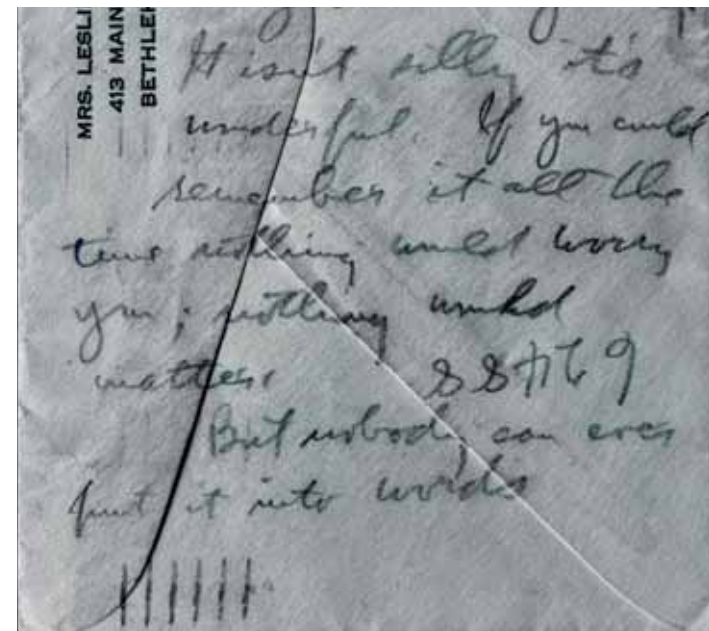 MRS. LESLI
413 MAIN
BETHLEH
It isn't silly it's
wonderful. If you could
remember it all the
time nothing would worry
you; nothing would
matter.
But nobody can ever
put it into words